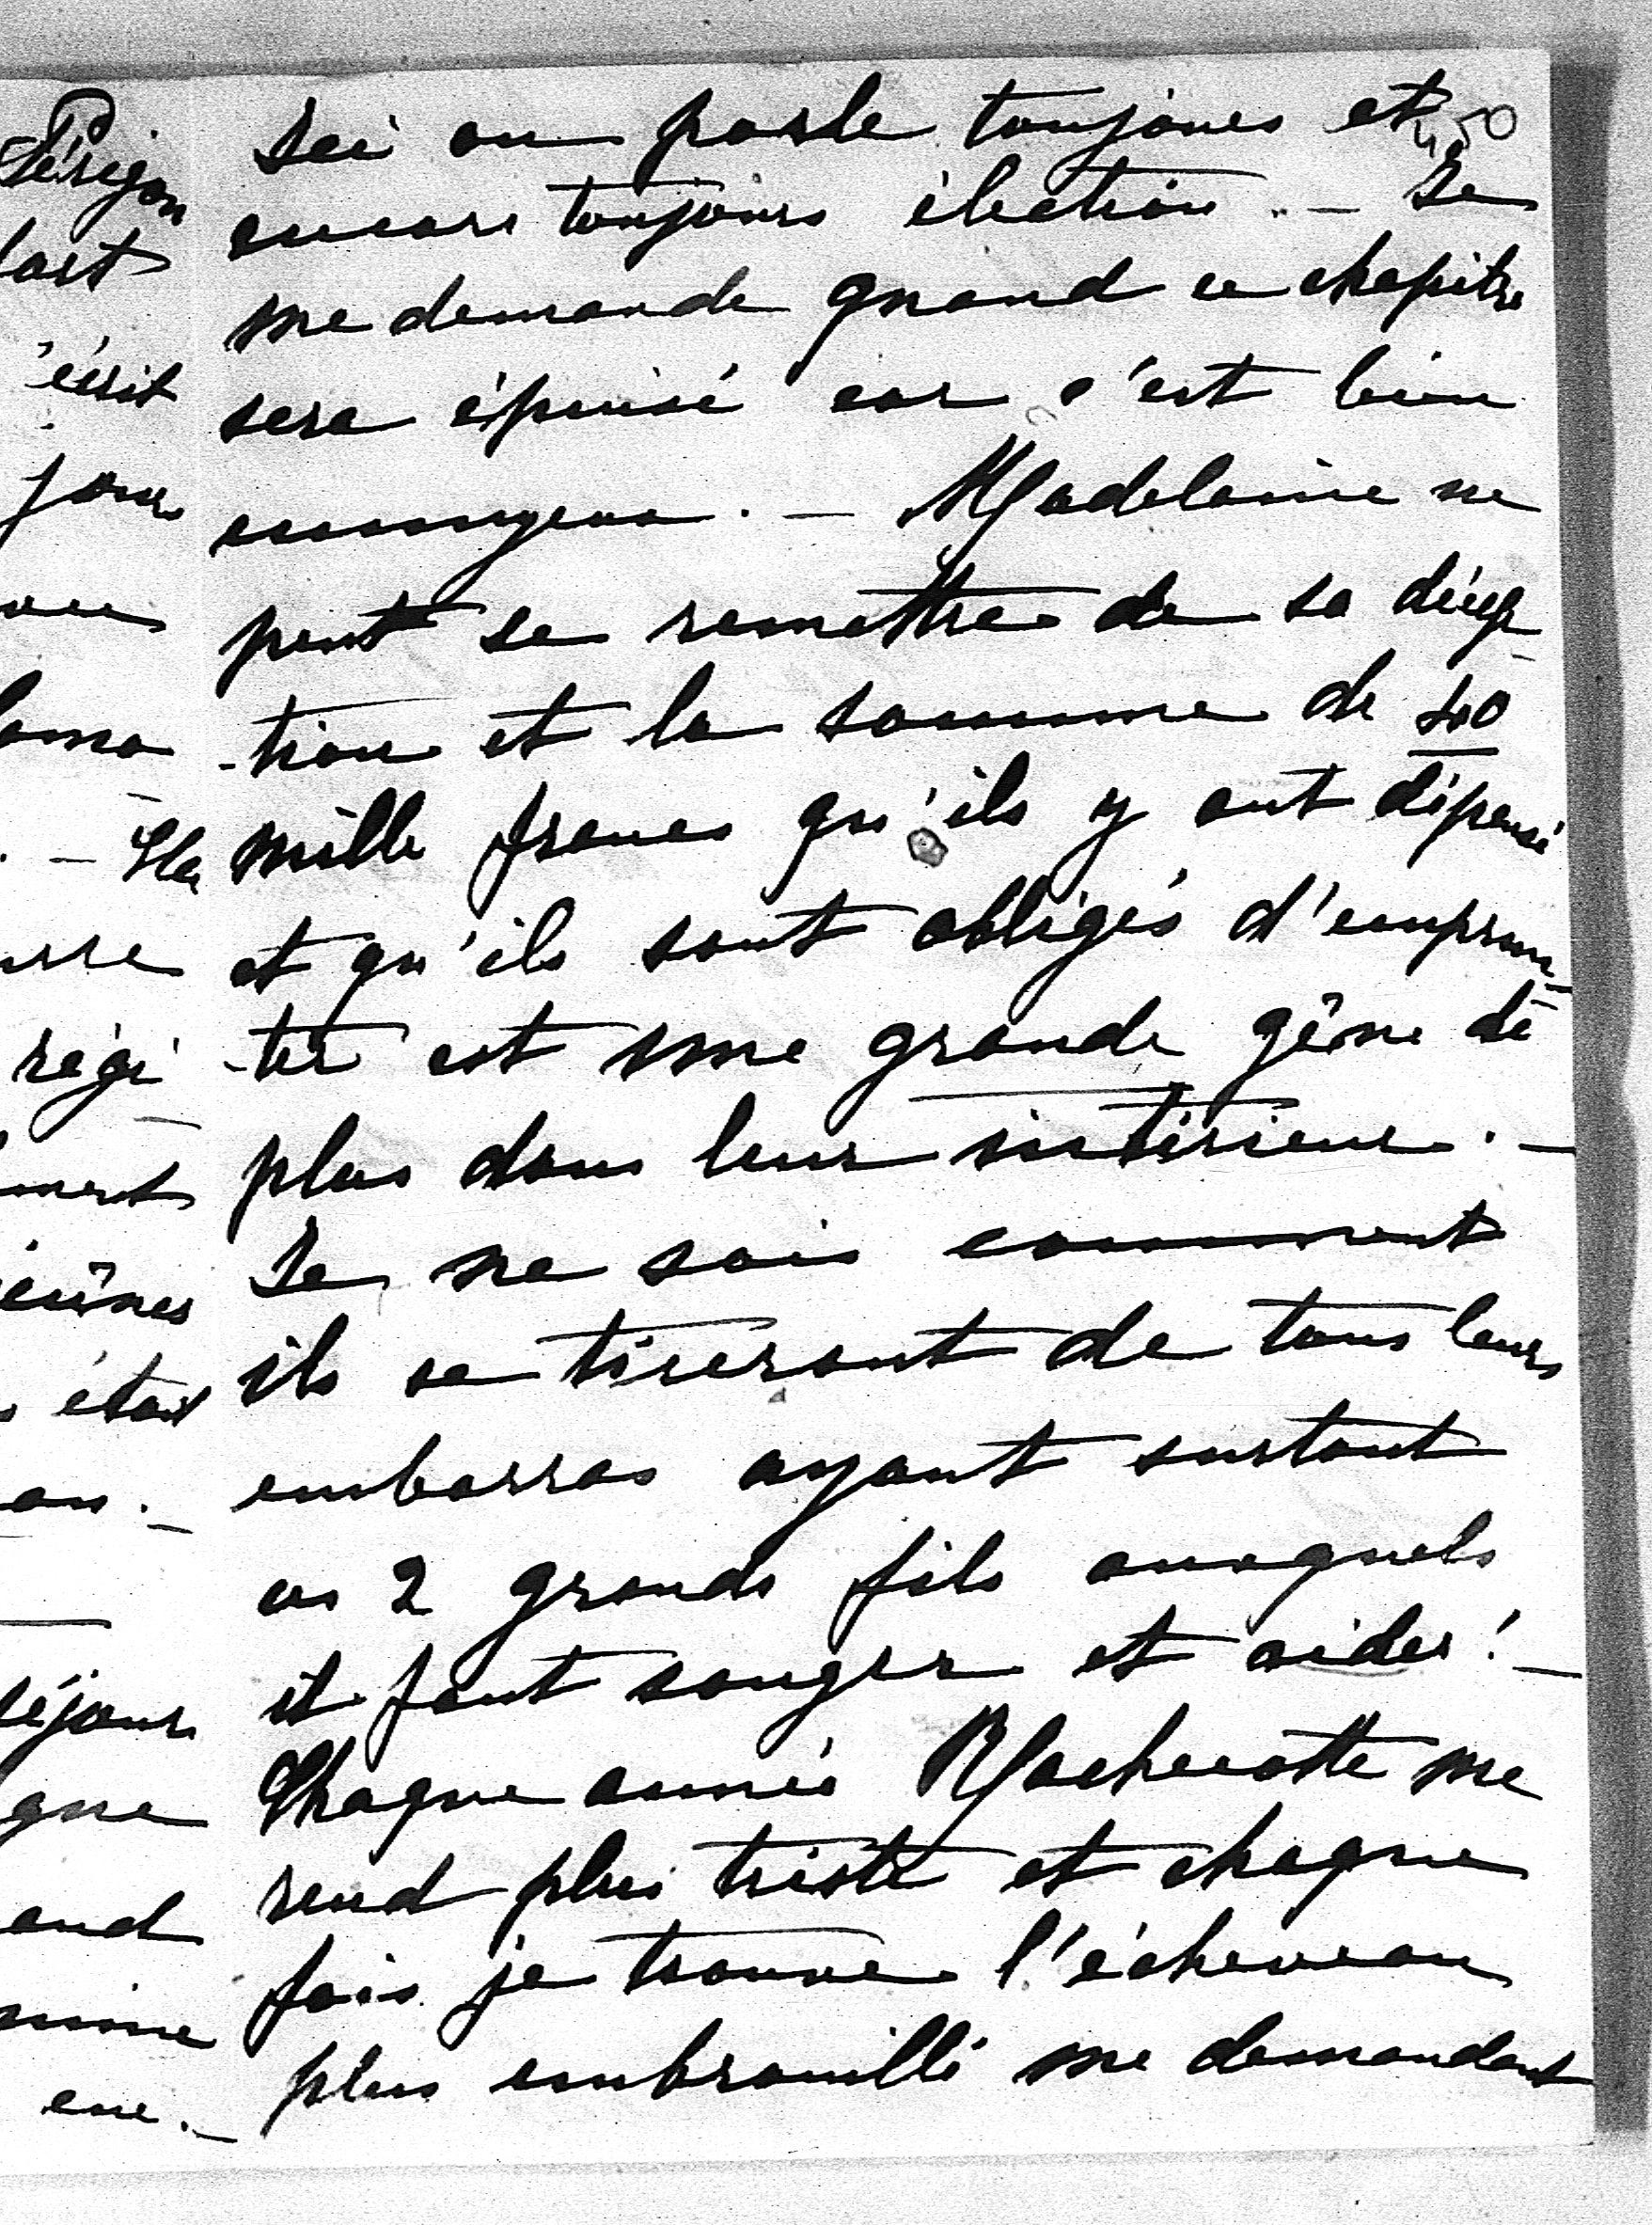 Ici on parle toujours et
encore toujours élection. — Je
me demande quand ce chapitre
sera épuisé car c'est bien
ennuyeux. — Madelaine ne
peut se remettre de sa décep-
-tion et la somme de 40
mille francs qu'ils y ont dépensé
et qu'ils sont obligés d'emprun-
-ter est une grande gêne de
plus dans leur intérieur. —
Je ne sais comment
ils se tireront de tous leurs
embarras ayant surtout
ces 2 grands fils auxquels
il faut songer et aider! —
Chaque année Machecotte me
rend plus triste et chaque
fois je trouve l'écheveau
plus embrouillé me demandant